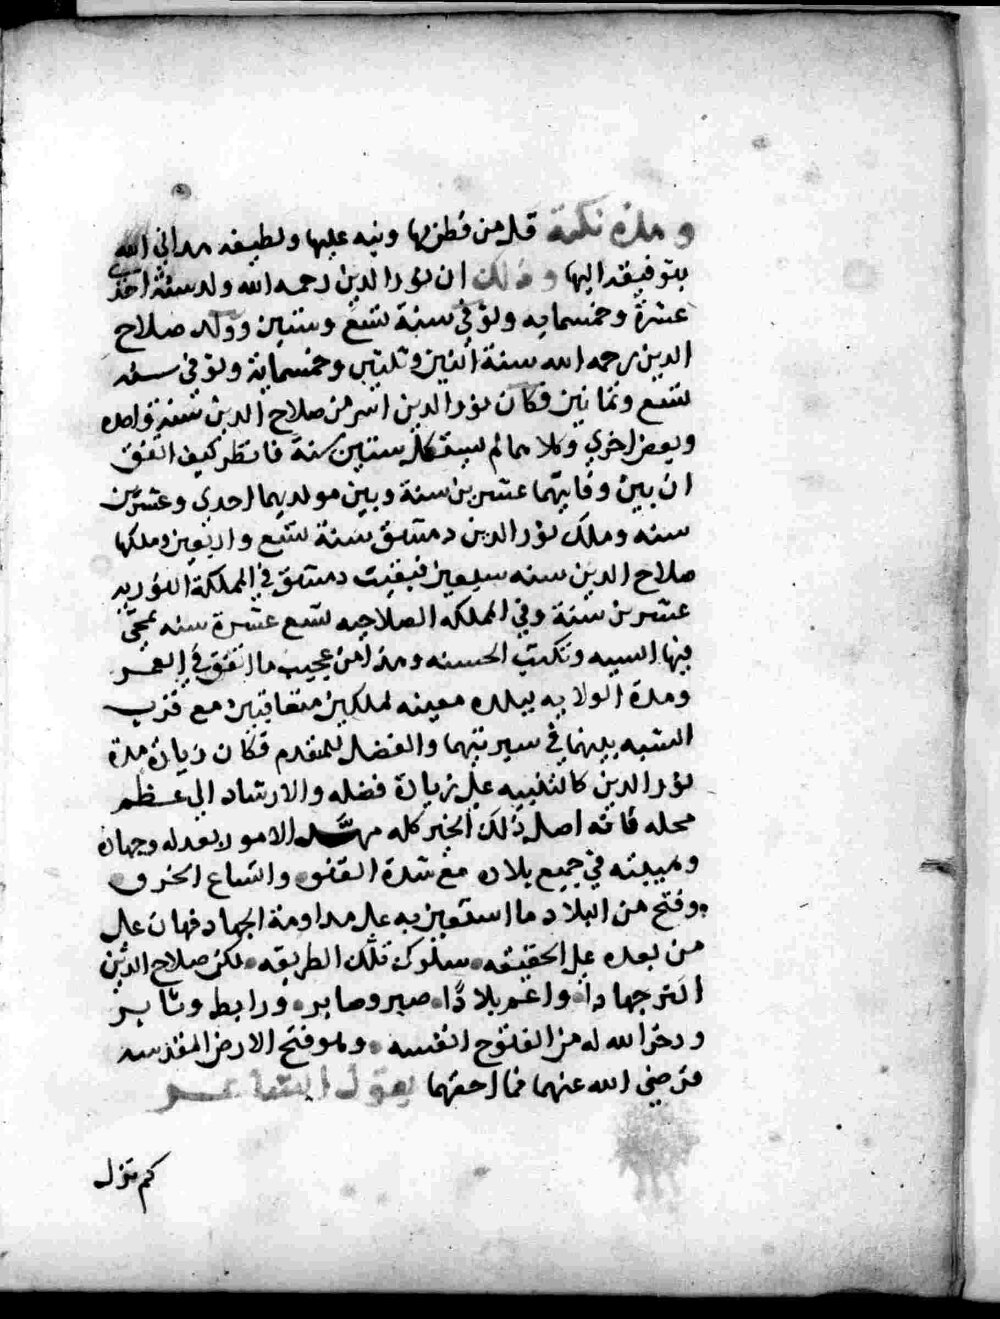 وهذه نكتة قل من فطن بها ونبه عليها ولطيفه هداني الله
بتوفيقه اليها وذلك ان نور الدين رحمه الله ولد سنة احدى
عشرة وخمسمايه وتوفي سنة تسع وستين وولد صلاح
الدين رحمه الله سنة اثنين وثلثين وخمسماية وتوفي سنه
تسع وثمانين فكان نور الدين اسن من صلاح الدين سنة واحده
وبعض اخرى وكلاهما لم يستكمل ستين سنة فانظر كيف اتفق
ان بين وفاتيهما عشرين سنة وبين مولديهما احدى وعشرين
سنه وملك نور الدين دمشق سنة تسع واربعين وملكها
صلاح الدين سنه سبعين فبقيت دمشق في المملكة النوريه
عشرين سنة وفي المملكه الصلاحيه تسع عشرة سنه تمحى
فيها السيه وتكتب الحسنه وهذا من عجيب ما اتفق في العمر
ومدة الولايه ببلده معينه لملكين متعاقبين مع قرب
الشبه بينهما في سيرتهما والفضل للمتقدم فكان زيادة مدة
نور الدين كالتنبيه على زيادة فضله والارشاد الى عظم
محله فانه اصل ذلك الخير كله مهد الامور بعدله وجهاده
وهيبته في جميع بلاده مع شدة الفتق واتساع الخرق
وفتح من البلاد ما استعين به على مداومة الجهاد فهان على
من بعده على الحقيقه سلوك تلك الطريقه لكن صلاح الدين
اكثر جهادا واعم بلادا صبر وصابر ورابط وثابر
وذخر الله له من الفتوح انفسه وهو فتح الارض المقدسه
فرضي الله عنهما فما احقهما بقول الشاعر
كم ترك